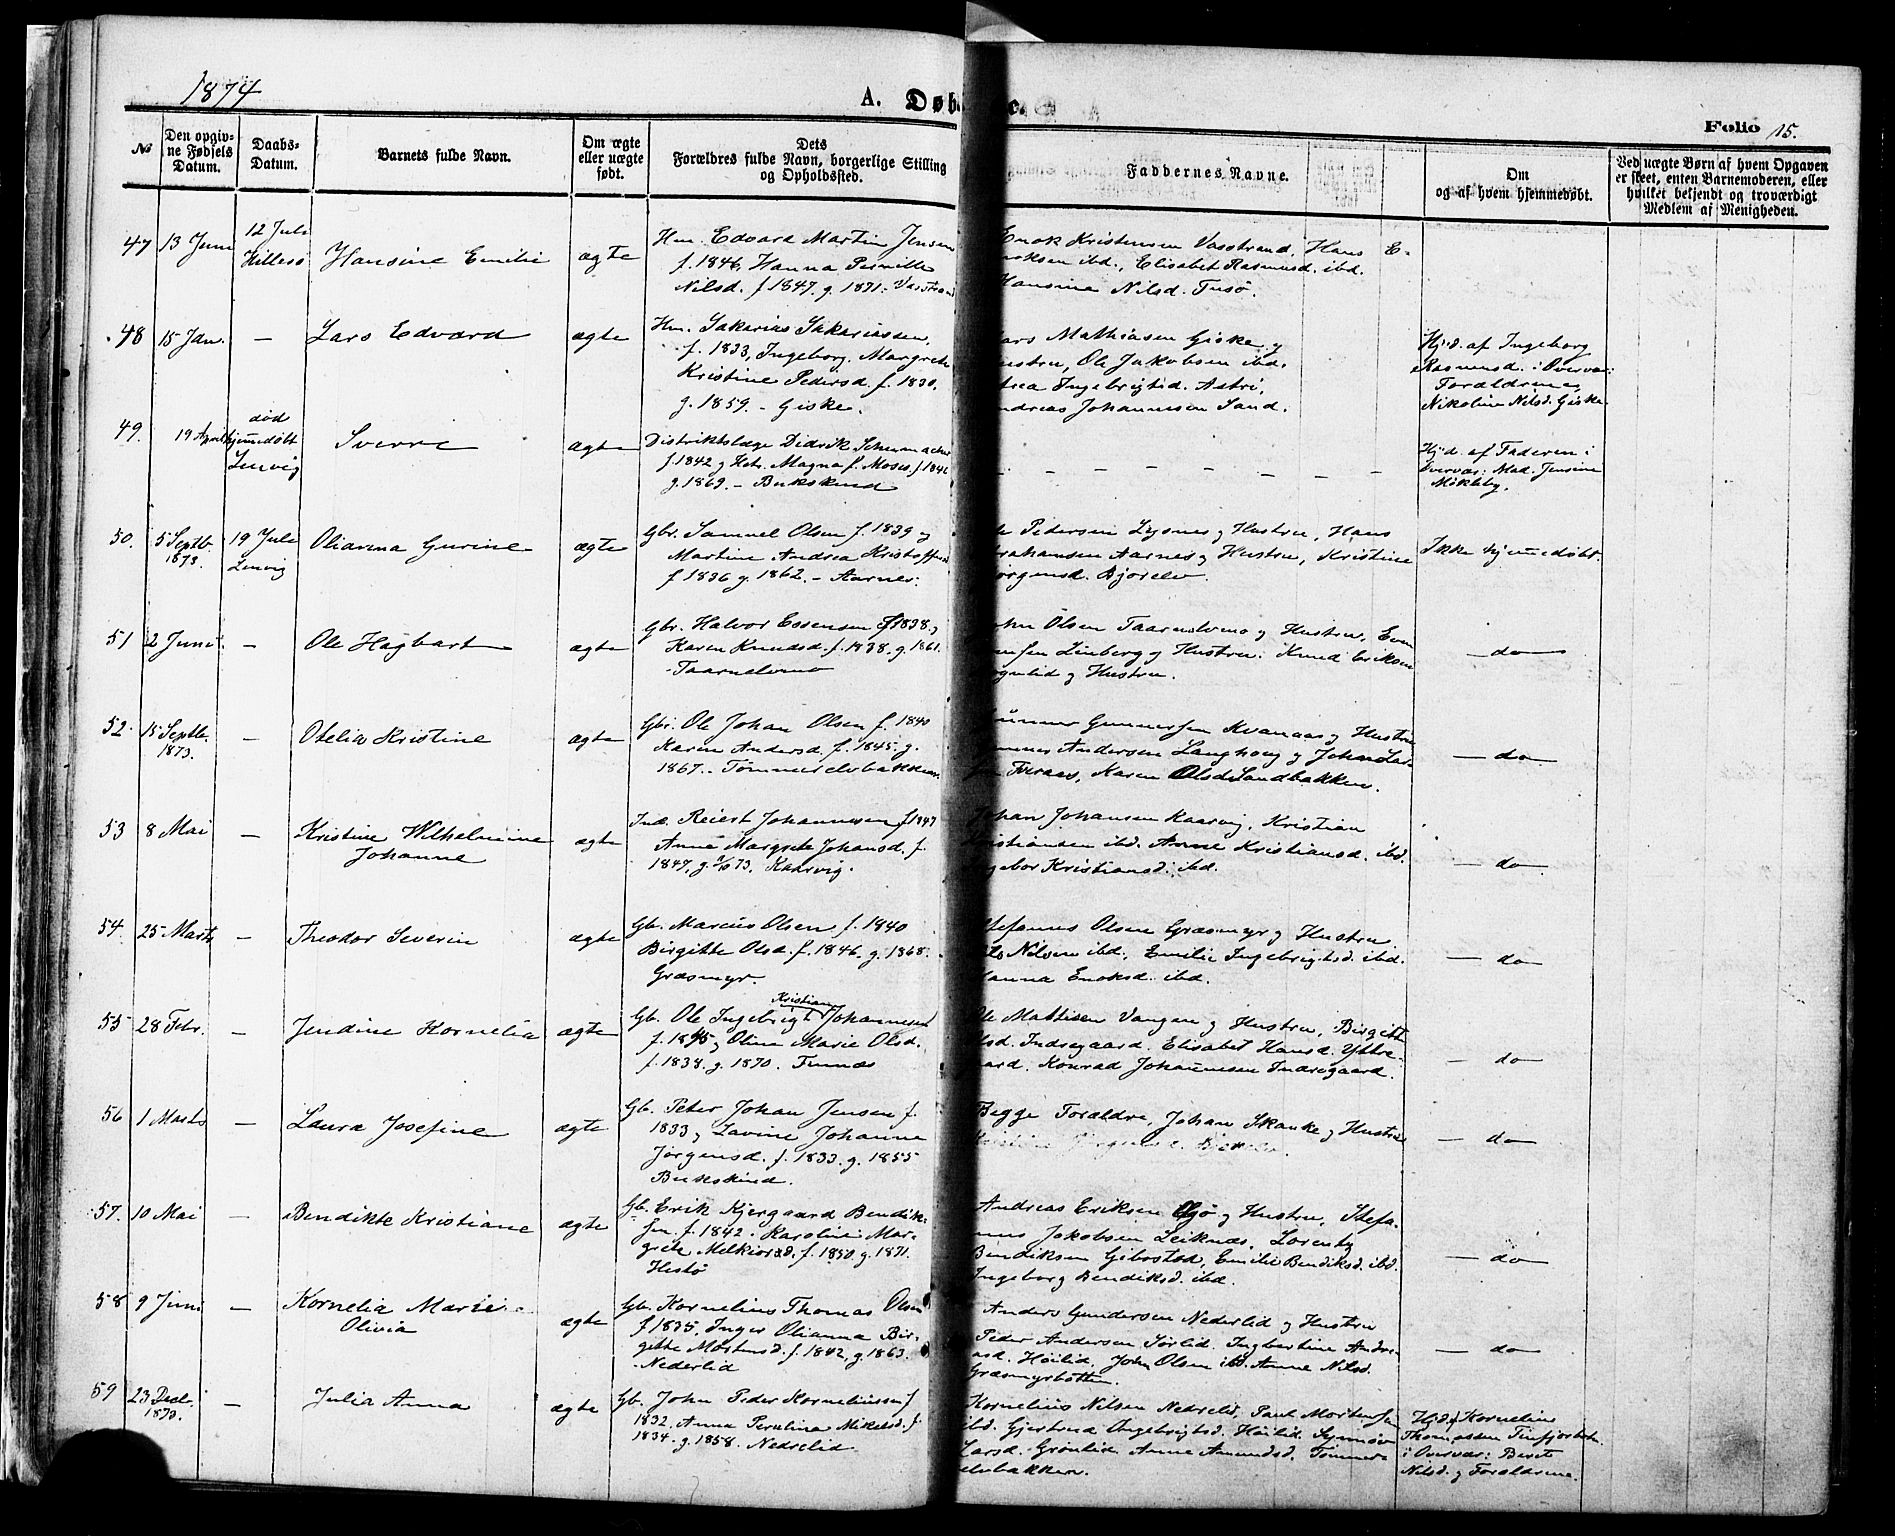 1874
A. Døb
Folio 15.
No
Den opgivne Fødsels Datum.
Daabs-Datum.
Barnets fulde Navn.
Om ægte eller uægte født.
Dets Forældres fulde Navn, borgerlige Stilling og Opholdssted.
Faddernes Navne.
Om og af hvem hjemmedøbt.
Ved uægte Børn af hvem Opgaven er skeet, enten Barnemoderen, eller hvilket bekjendt og troværdigt Medlem af Menigheden.
47 13 Juni 12 Juli Hillesø Hansine Emilie ægte
Hm. Edvard Martin Jensen
f. 1846, Hanna Pernille
Nilsd. f 1847. g. 1871. Vasstrand
Enok Kristensen Vasstrand, Hans E-
noksen ibd., Elisabet Rasmusd. ibd.
Hansine Nilsd. Tusø.
48 15 Jan. — Lars Edvard ægte
Hm. Sakarias Sakariassen,
f. 1833, Ingeborg Margrete
Kristine Pedersd. f. 1830.
g. 1859. - Giske.
Lars Mathiasen Giske og
Hustru, Ole Jakobsen ibd.
Ingebrigtsd. Astri,
Andreas Johannesen Sand.
Hj.d. af Ingeborg
Rasmusd. i Overvær:
Forældrene,
Nikoline Nilsd. Giske.
49. 19 April død hjemmedøbt Lenvig Sverre ægte
Distriktslæge Didrik Schumacher
f. 1842 og Magna f. Moses. f 1846
g. 1869. - Bukskind
— — — — — — — —
Hj.d. af Faderen i
Overvær: Mad. Jensine
Mökleby.
50. 5 Septb. 1873. 19 Juli Lenvig Olianna Gurine ægte
Gbr. Samuel Olsen f. 1839 og
Martine Andrea Kristoffersd
f 1836 g. 1862. - Aarnes.
Pedersen Lysnes og Hustru, Hans
Abrahamsen Aarnes og Hustru, Kristine
Jörgensd. Bjorelv.
Ikke hjemmedøbt.
51 2 Juni — Ole Hagbart ægte
Gbr. Halvor Esensen f 1838 og
Karen Knudsd. f. 1838. g. 1861.
Taarnelvmo
John Olsen Taarnelvmo og Hustru, Even
Linberg og Hustru. Knud Eriksen
og Hustru.
— do —
52. 15 Septb. 1873. — Otelia Kristine ægte
Gbr. Ole Johan Olsen f. 1840
Karen Andersd. f. 1845. g.
1867. - Tømmerelvbakken
Gunner Gunnersen Kvanaas og Hustru
Gunner Andersen Langhaug og Johan Lar-
sen Furaas, Karen Olsd. Sandbakken.
— do —
53 8 Mai — Kristine Wilhelmine Johanne ægte
Ind. Reiert Johannesen f 1847
Anne Margrete Johansd. f.
1847. g. 73. Kaarvig.
Johan Johansen Kaarvig, Kristian
Kristiansen ibd. Anne Kristiansd. ibd.
Ingebor Kristiansd. ibd.
— do —
54. 25 Marts — Theodor Severin ægte
Gb. Marcus Olsen f. 1840
Birgitte Olsd. f. 1846. g. 1868.
Græsmyr.
Stefanus Olsen Græsmyr og Hustru
Nils Nilsen ibd. Emilie Ingebrigtsd. ibd.
Hanna Enoksd. ibd.
— do —
55 28 Febr. — Jendine Kornelia ægte
Gb. Ole Ingebrigt Kristian Johannesen
f. 1845 og Oline Marie Olsd.
f. 1838. g. 1870. Finnæs
Ole Mattisen Vangen og Hustru, Birgitte
Olsd. Indregaard. Elisabet Hansd. Yttre-
gaard. Konrad Johannesen Indregaard.
— do —
56 1 Marts — Laura Josefine ægte
Gb. Peter Johan Jensen f.
1833 og Lavine Johanna
Jørgensd. f. 1833. g. 1855
Bukskind.
Begge Forældre, Johan Skanke og Hustru
— do —
57. 10 Mai — Bendikte Kristiane ægte
Gb. Erik Kjergaard Bendik-
sen f. 1842. Karoline Mar-
grete Melkiorsd. f. 1850 g. 1871.
Hestø
Andreas Eriksen Gjø og Hustru, Stefa-
nus Jakobsen Leiknæs, Lorents
Bendiksen Gibostad, Emilie Bendiksd. ibd.
Ingeborg Bendiksd. ibd.
— do —
58 9 Juni — Kornelia Marie Olivia ægte
Gb. Kornelius Thomas Olsen
f 1835, Inger Olianna Bir-
gitte Mortensd. f. 1842, g. 1863.
Nederlid
Anders Gundersen Nederlid og Hustru
Peder Andersen Sørlid. Ingbertine Andre-
asd. Høilid, John Olsen ibd. Anne Nilsd.
Græsmyrbotten.
— do —
59 23 Decbr. 1873. — Julia Anna ægte
Gb. John Peder Korneliussen f
1832. Anna Perulina Mikelsd. f.
1834. g. 1858. Nedrelid
Kornelius Nilsen Nedrelid, Paul Mortensen
ibd. Gjertrud Ingebrigtsd. Høilid, Synnøv
Larsd. Grönlid, Anne Amundsd. Tömmer-
elvbakken.
Hj.d. af Kornelius
Thomassen Finfjordbotn
i Overvær: Berit
Nilsd. og Forældrene.